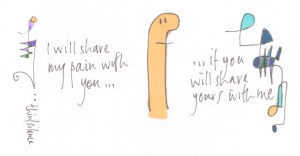 I will share
my pain with
you...
...if you
will share
yours with me